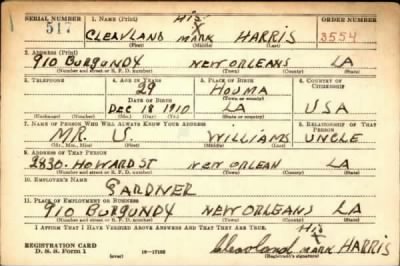 SERIAL NUMBER 1. NAME (Print) HIS ORDER NUMBER
517 CLEAVLAND X MARK HARRIS 3554
(First) (Middle) (Last)
2. ADDRESS (Print)
910 BURGUNDY NEW ORLEANS LA
(Number and street or R. F. D. number) (Town) (County) (State)
3. TELEPHONE 4. AGE IN YEARS 5. PLACE OF BIRTH 6. COUNTRY OF CITIZENSHIP
29 HOUMA
DATE OF BIRTH (Town or county)
DEC 18 1910 LA USA
(Exchange) (Number) (Mo.) (Day) (Yr.) (State or country)
7. NAME OF PERSON WHO WILL ALWAYS KNOW YOUR ADDRESS 8. RELATIONSHIP OF THAT PERSON
MR. U. WILLIAMS UNCLE
(Mr., Mrs., Miss) (First) (Middle) (Last)
9. ADDRESS OF THAT PERSON
2830. HOWARD ST NEW ORLEAN LA
(Number and street or R. F. D. number) (Town) (County) (State)
10. EMPLOYER'S NAME
GARDNER
11. PLACE OF EMPLOYMENT OR BUSINESS
910 BURGUNDY NEW ORLEANS LA
(Number and street or R. F. D. number) (Town) (County) (State)
I AFFIRM THAT I HAVE VERIFIED ABOVE ANSWERS AND THAT THEY ARE TRUE. HIS
REGISTRATION CARD Cleavland X MARK HARRIS
D. S. S. Form 1 (over) 16—17105 (Registrant's signature)